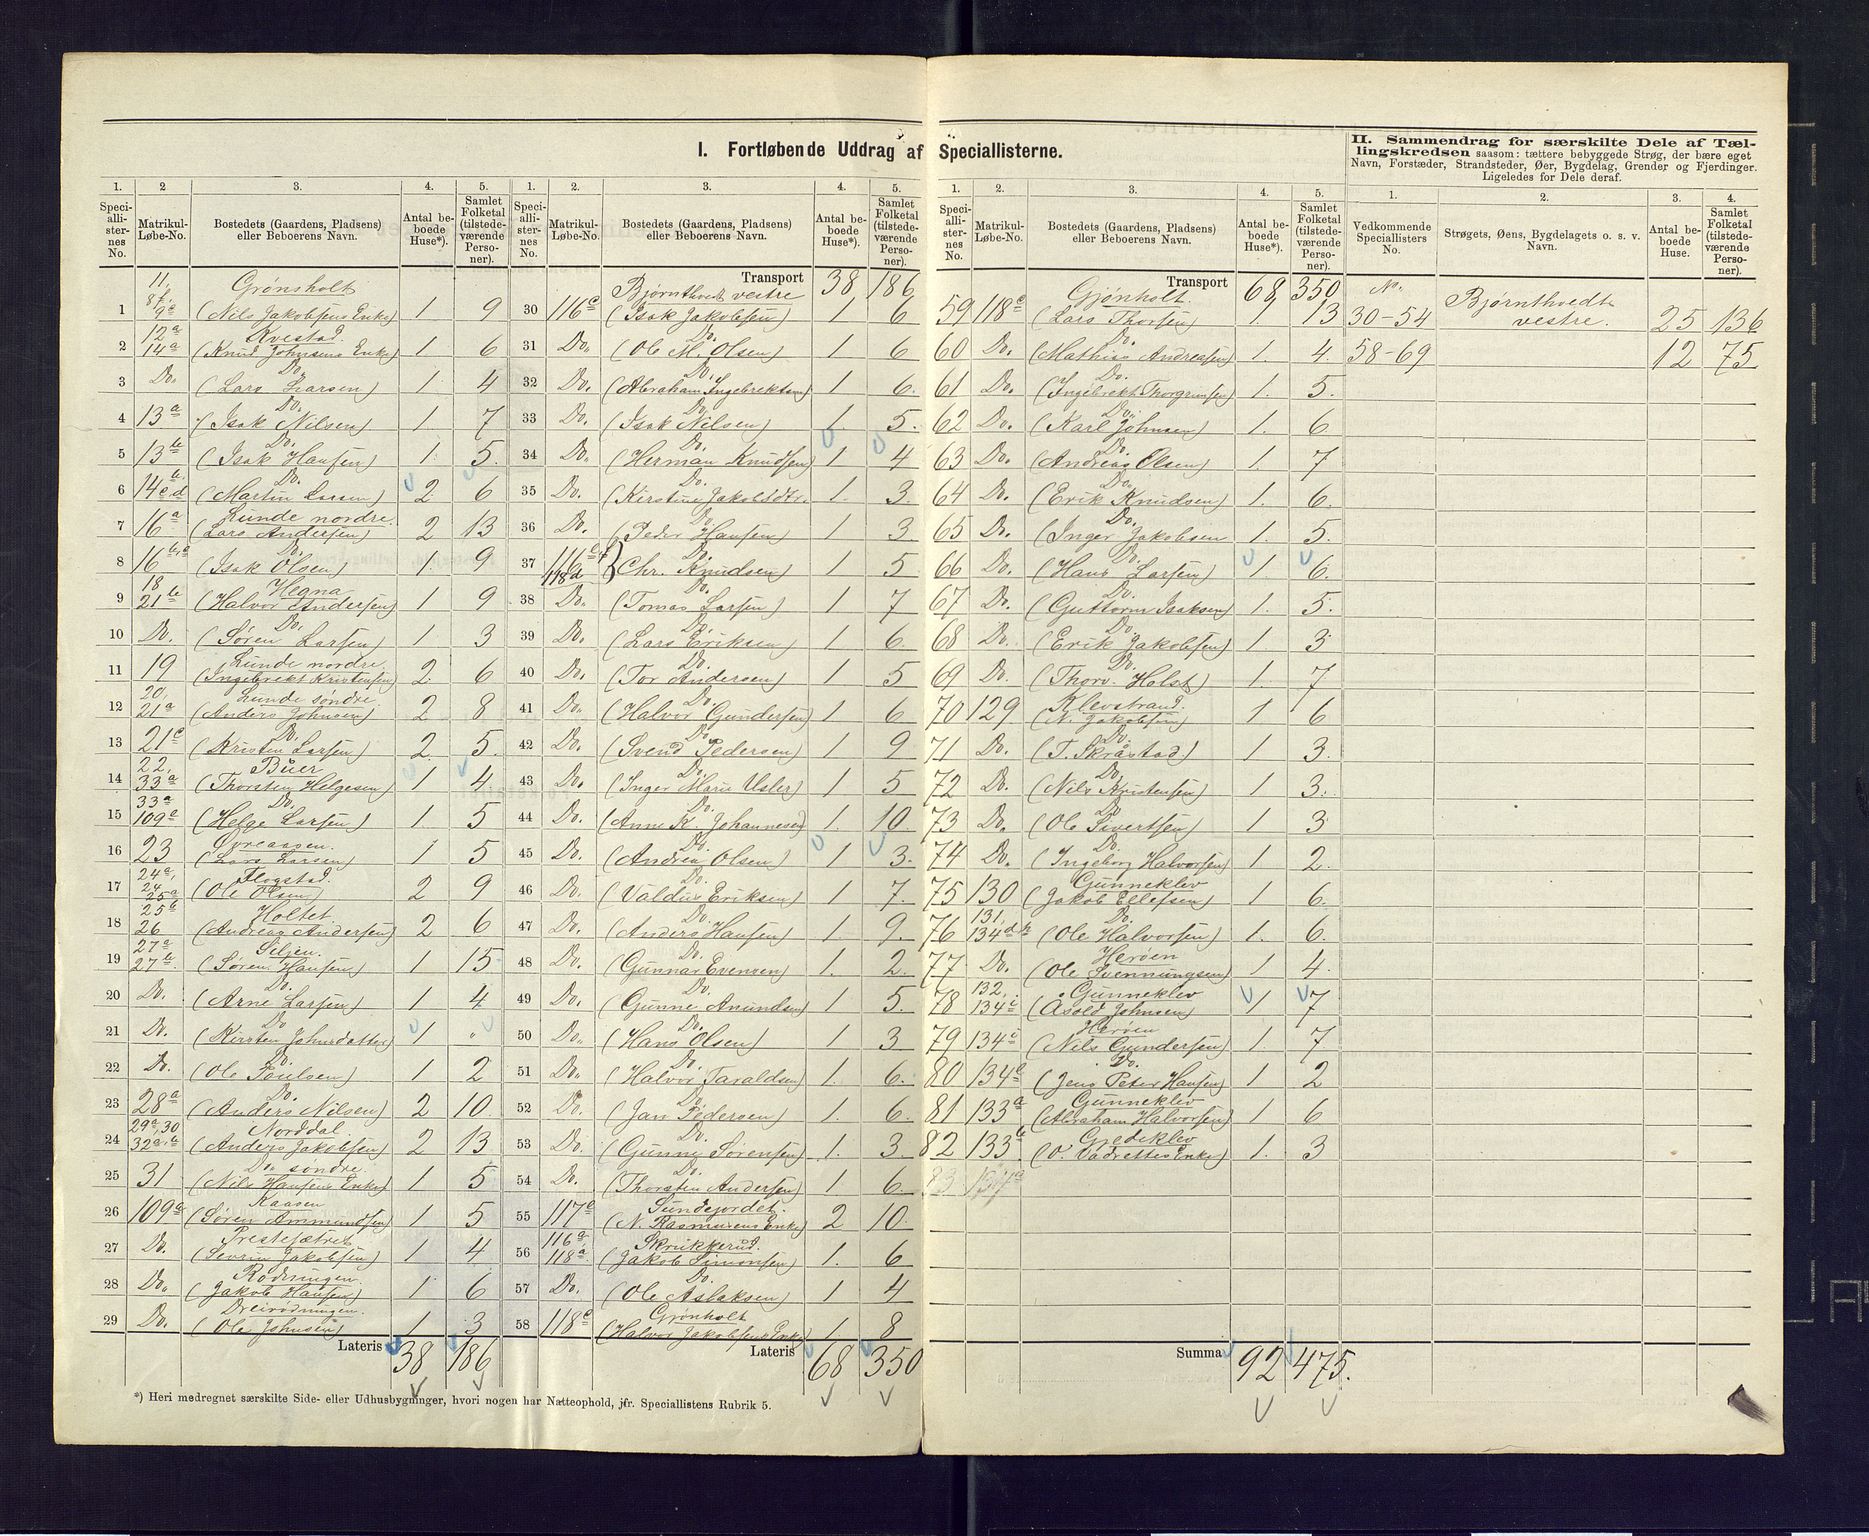 I. Fortløbende Uddrag af Speciallisterne.
II. Sammendrag for særskilte Dele af Tæl-
lingskredsen saasom: tættere bebyggede Strøg, der bære eget
Navn, Forstæder, Strandsteder, Øer, Bygdelag, Grender og Fjerdinger.
Ligeledes for Dele deraf.
1. 2 3. 4. 5.
Speciallisternes No. Matrikul-Løbe-No. Bostedets (Gaardens, Pladsens) eller Beboerens Navn. Antal beboede Huse*). Samlet Folketal (tilstedeværende Personer).
11, 8f, 9a Grønsholt
1 (Nils Jakobsens Enke) 1 9
12a Kvestad.
2 14a (Knud Johnsens Enke) 1 6
3 Do. Do. (Lars Larsen) 1 4
4 13a Do. (Isak Nilsen) 1. 7
5 13b Do. (Isak Hansen) 1. 5.
6 14c.d Do. (Martin Larsen) 2. 6
7 16a Lunde nordre. (Lars Andersen) 2 13
8 16b,c Do. (Isak Olsen) 1. 9
9 18 21b Hegna (Halvor Andersen) 1 9
10 Do. Do. (Søren Larsen) 1 3
11 19 Lunde nordre. (Ingebrekt Kristensen) 2. 6
12 20, 21a Lunde søndre. (Anders Johnsen) 2 8
13 21c Do. (Kristen Larsen) 2. 5.
14 22, 33a Büer (Thorsten Helgesen) 1 4.
15 33a 109a Do. (Helge Larsen) 1. 5
16 23 Øvreaasen. (Lars Larsen) 1 5
17 24a, 24 25a Flogstad. (Ole Olsen) 2 9
18 25b 26 Holtet. (Andreas Andersen) 2 6
19 27a 27b Siljen. (Søren Hansen) 1 15
20 Do. Do. (Arne Larsen) 1 4
21 Do. Do (Kirsten Johnsdatter) 1 "
22 Do. Do. (Ole Poulsen) 1 2
23 28a Do. (Anders Nilsen) 2 10.
24 29a,30 32a,b Norddal (Anders Jakobsen) 2 13
25 31 Do. søndre. (Nils Hansens Enke) 1 5
26 109a Kaasen (Søren Ammundsen) 1 5
27 Do. Prestesætret (Sevrin Jakobsen) 1 4
28 Do. Rødningen. (Jakob Hansen) 1 6
29 Do. Dreirødningen. (Ole Johnsen) 1 3
Lateris 38 186
*) Heri medregnet særskilte Side- eller Udhusbygninger, hvori nogen har Natteophold, jfr. Speciallistens Rubrik 5.
1. 2. 3. 4. 5.
Speciallisternes No. Matrikul-Løbe-No. Bostedets (Gaardens, Pladsens) eller Beboerens Navn. Antal beboede Huse*). Samlet Folketal (tilstedeværende Personer).
Transport 38, 186
30 116c Bjørnthvedt vestre (Isak Jakobsen) 1 6
31 Do. Do. (Ole M. Olsen) 1 6
32 Do. Do. (Abraham Ingebrektsen) 1 6.
33 Do. Do. (Isak Nilsen) 1. 5.
34 Do. Do. (Herman Knudsen) 1 4
35 Do. Do. (Kirstine Jakobsdtr. 1. 3.
36 Do. Do. (Peder Hansen) 1 3.
37 116e,f 118d Do. (Chr. Knudsen) 1 5
38 Do. Do. (Tomas Larsen) 1 7
39 Do. Do. (Lars Eriksen) 1 6.
40 Do. Do. (Tor Andersen) 1 5
41 Do. Do. (Halvor Gundersen) 1 6
42 Do. Do. (Svend Pedersen) 1 9
43 Do. Do. (Inger Marie Usler) 1 5
44 Do. Do. (Anne K. Johannesen) 1. 10.
45 Do. Do. (Andrea Olsen) 1 3.
46 Do. Do. (Valdur Eriksen) 1 7.
47 Do. Do. (Anders Hansen) 1. 9.
48 Do. Do. (Gunnar Evensen) 1. 2.
49 Do. Do. (Gunne Anundsen) 1 5.
50 Do. Do. (Hans Olsen) 1 3
51 Do. Do. (Halvor Taraldsen) 1. 6.
52 Do. Do. (Jan Pedersen) 1. 6.
53 Do. Do. (Gunne Sørensen) 1. 3.
54 Do. Do. (Thorsten Andersen) 1. 6
55 117c Sundejordet. (N. Rasmusens Enke) 2 10.
56 116a 118a Skrukkerud. (Jakob Simonsen) 1. 6
57 Do. Do. (Ole Aslaksen) 1 4
58 118c Grønholt (Halvor Jakobsens Enke) 1 8
Lateris 68 350
1. 2. 3. 4. 5.
Speciallisternes No. Matrikul-Løbe-No. Bostedets (Gaardens, Pladsens) eller Beboerens Navn. Antal beboede Huse*). Samlet Folketal (tilstedeværende Personer).
Transport 68, 350
59 118c Gjønholt. (Lars Thorsen) 1. 13
60 Do. Do. (Mathias Andreasen) 1. 4.
61 Do. Do. (Ingebrekt Thorgrimsen) 1. 5.
62 Do. Do. (Karl Johnsen) 1. 6.
63 Do. Do. (Andreas Olsen) 1. 7
64 Do. Do. (Erik Knudsen) 1. 6.
65 Do. Do. (Inger Jakobsen 1. 5.
66 Do. Do. (Hans Larsen) 1 6.
67 Do. Do. (Guttorm Isaksen) 1. 5.
68 Do. Do. (Erik Jakobsen) 1 3
69 Do. Do. (Thorv. Holst) 1. 7
70 129. Klevstrand. (N. Jakobsen) 1 6
71 Do. Do. (T. Skråstad) 1. 3.
72 Do. Do. (Nils Kristensen) 1 3.
73 Do. Do (Ole Sivertsen) 1 3
74 Do. Do. (Ingeborg Halvorsen) 1 2.
75 130 Gunneklev (Jakob Ellefsen) 1 6.
76 131, 134d,h Do. (Ole Halvorsen) 1. 6.
77 Do. Herøen (Ole Svennungsen) 1 4.
78 132, 134i Gunneklev (Asold Johnsen) 1 7
79 134i Herøen (Nils Gundersen) 1. 7
80 134l Do. (Jens Peter Hansen) 1 2
81 133a Gunneklev (Abraham Halvorsen) 1 6
82 133b Gredeklev (O. Vadrettes Enke) 1. 3
83 134a
Summa 92 475.
1. 2. 3. 4.
Vedkommende Speciallisters No. Strøgets, Øens, Bygdelagets o. s. v. Navn. Antal beboede Huse. Samlet Folketal (tilstedeværende Personer).
No.
30-54 Bjørnthvedt vestre. 25 136
58-69 12 75